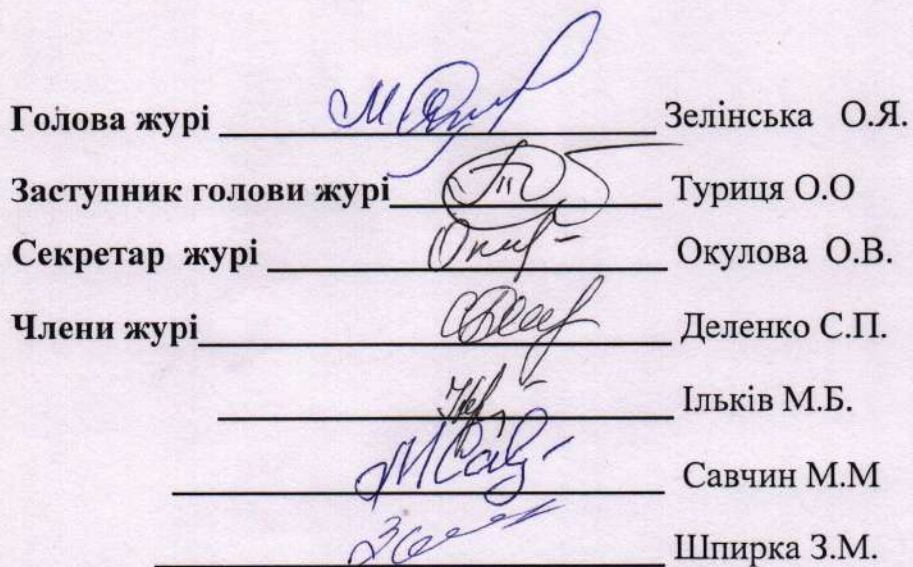 Голова журі Зелінська О.Я.
Заступник голови журі Туриця О.О
Секретар журі Окулова О.В.
Члени журі Деленко С.П.
Ільків М.Б.
Савчин М.М
Шпирка З.М.